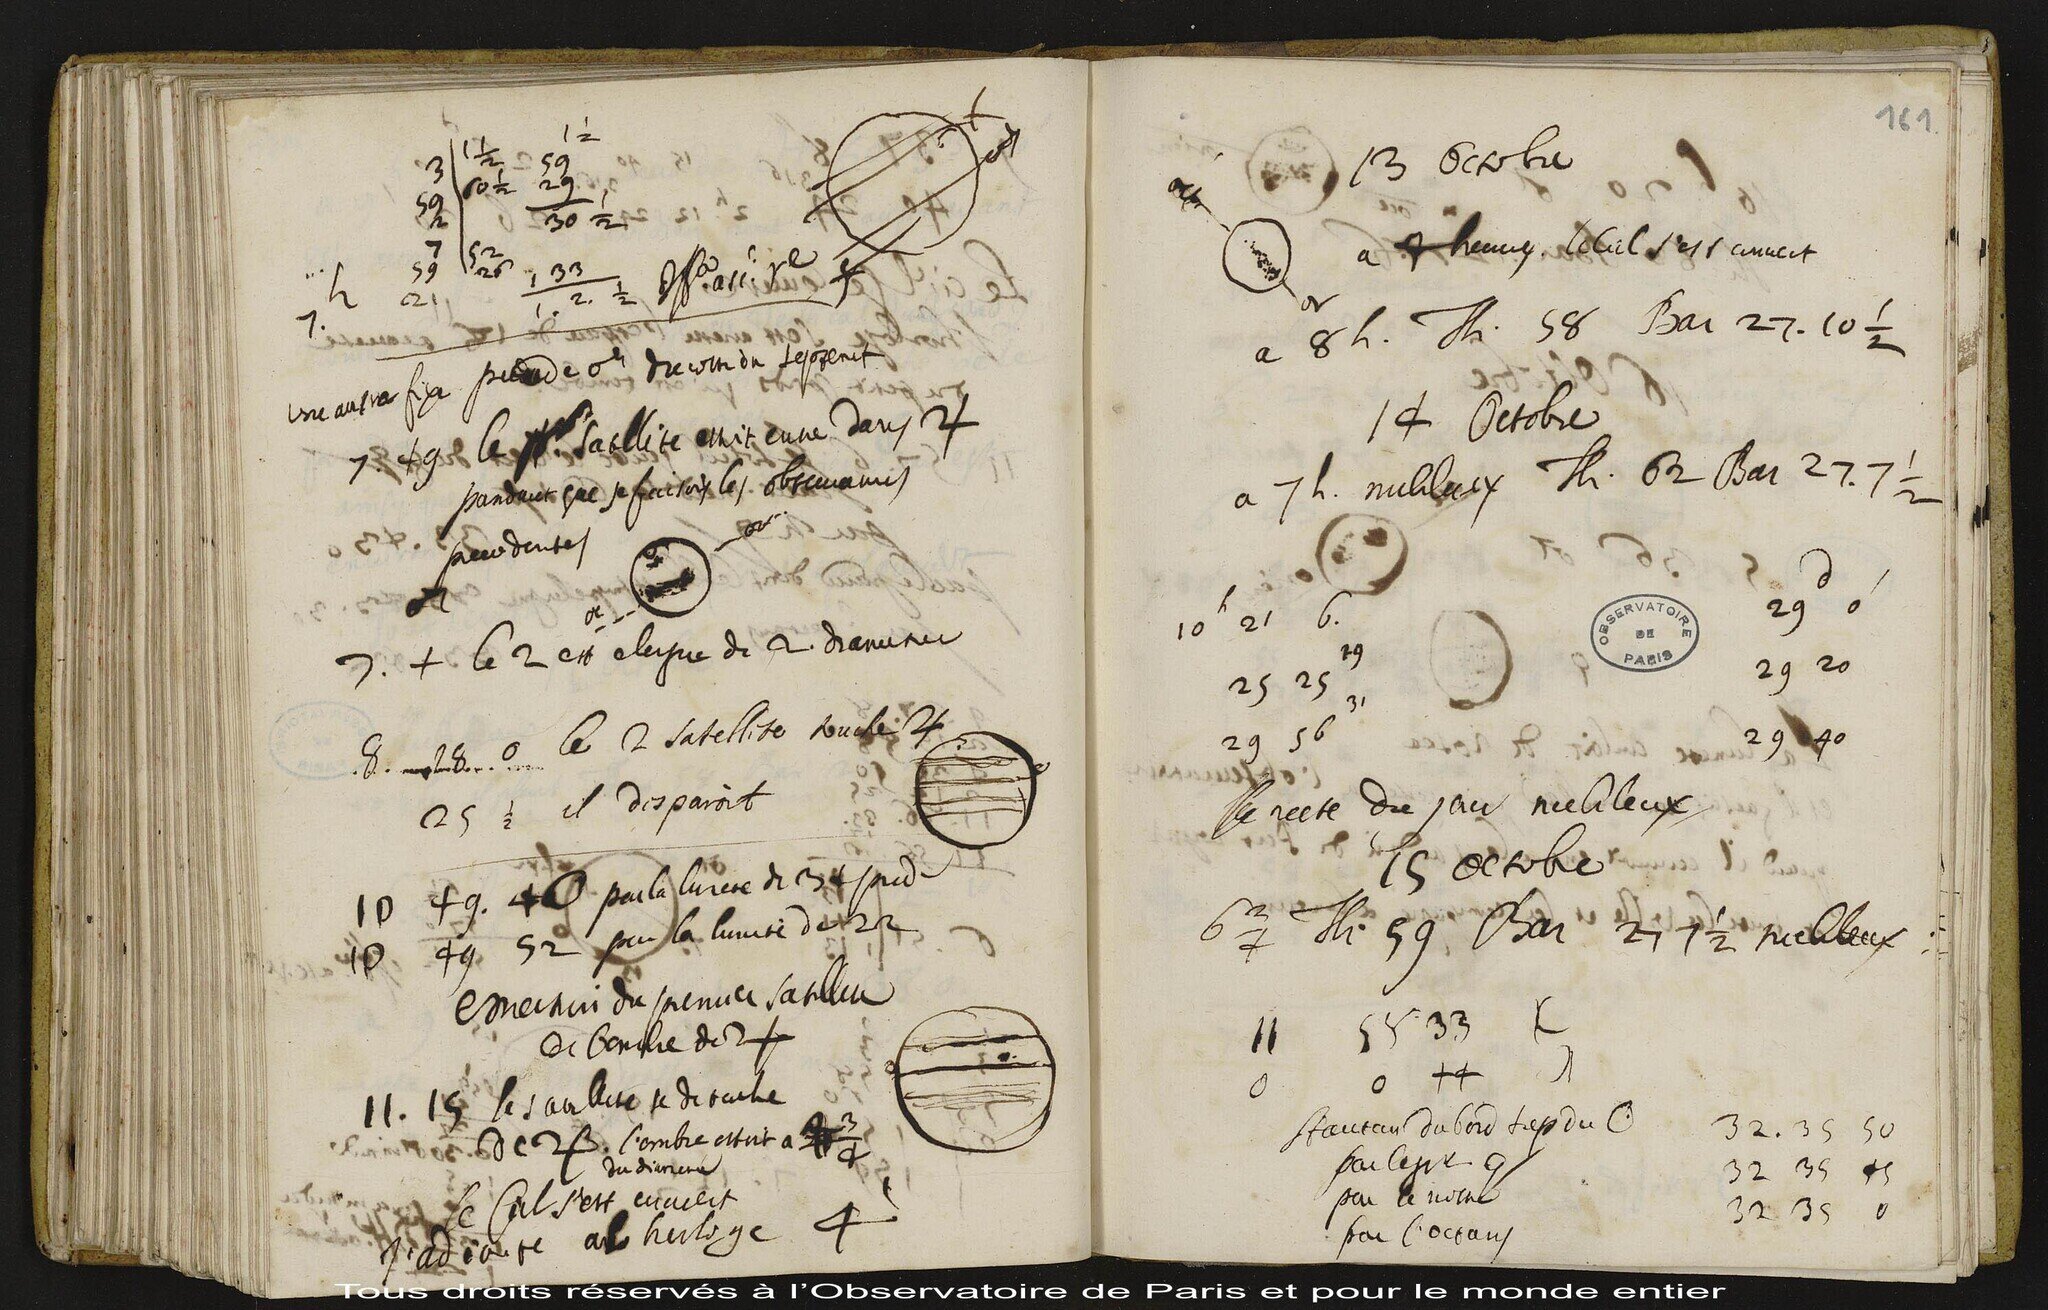 1 1/2
3 1 1/2 59
59 60 1/2 29
2 30 1/2
7 52
7. h 59 26 1 33
21 1. 2. 1/2
une autre fixe precede ♂ du costé du septent
7. 49 le satellite estoit entré dans ♃
pandant que se faisoit les observations
precedentes
or
oc
7. 4 le 2 est eloigné de 2. diametres
8. 28. 0 le 2 satellite touche ♃
25 1/2 il disparoit
10 49. 40 par la lunete de 34 pied
10 49 52 par la lunete de 22
emersion du premier satellite
de l'ombre de ♃
11. 15 le satellite se detache
de ♃. l'ombre estoit a 3/4
du diametre
le ciel s'est couvert
j'ad jouté a l'horloge 4'
161
13 Octobre
occ
a 7 heures le ciel s'est couvert
or
a 8 h. Th. 58 Bar 27. 10 1/2
14 Octobre
a 7 h. nubileux Th. 62 Bar 27. 7 1/2
10 h 21 6. 29 d 0'
25 25 19 29 20
29 56 31 29 40
OBSERVATOIRE DE PARIS
le reste du jour nubileux
15 Octobre
6 3/4 Th. 59 Bar 27 7 1/2 nubileux
11 55 33
0 0 44
hauteur du bord sup du ☉ 32. 35 50
32 35 45
par le nostre 32 35 0
par l'octans
Tous droits réservés à l'Observatoire de Paris et pour le monde entier